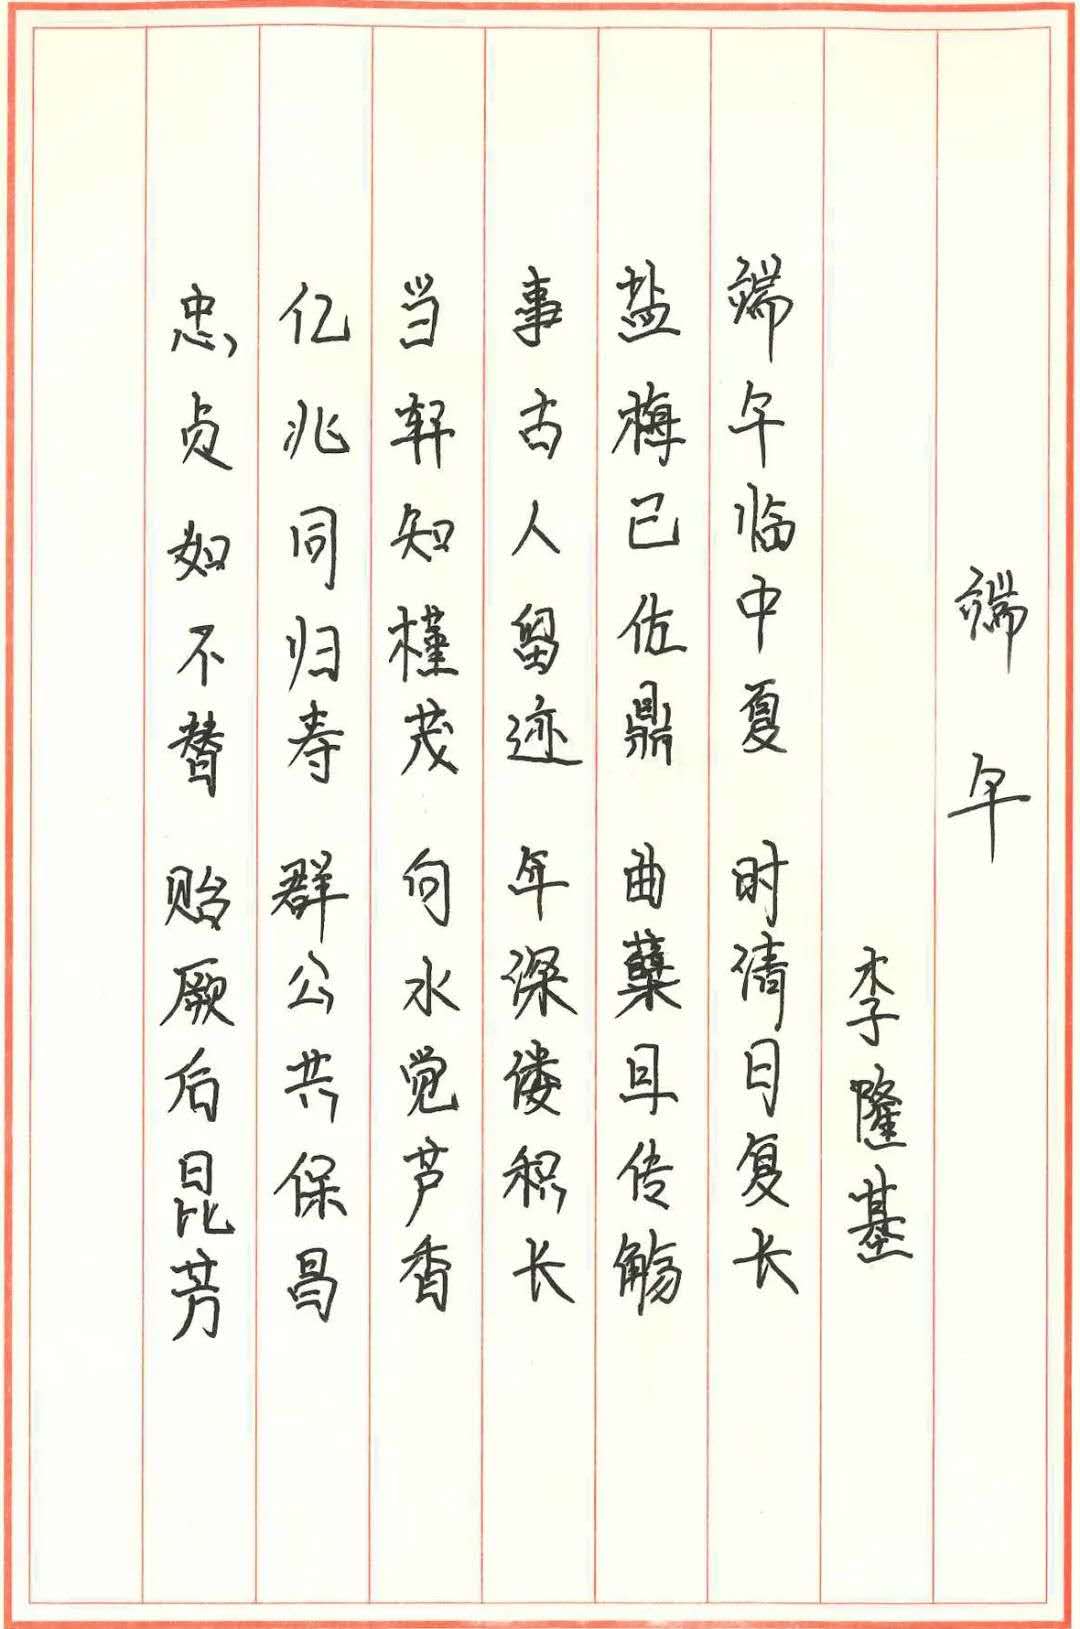 端午
李隆基
端午临中夏 时清日复长
盐梅已佐鼎 曲糵且传觞
事古人留迹 年深偻积长
当轩知槿茂 向水觉芦香
亿兆同归寿 群公共保昌
忠贞如不替 贻厥后昆芳